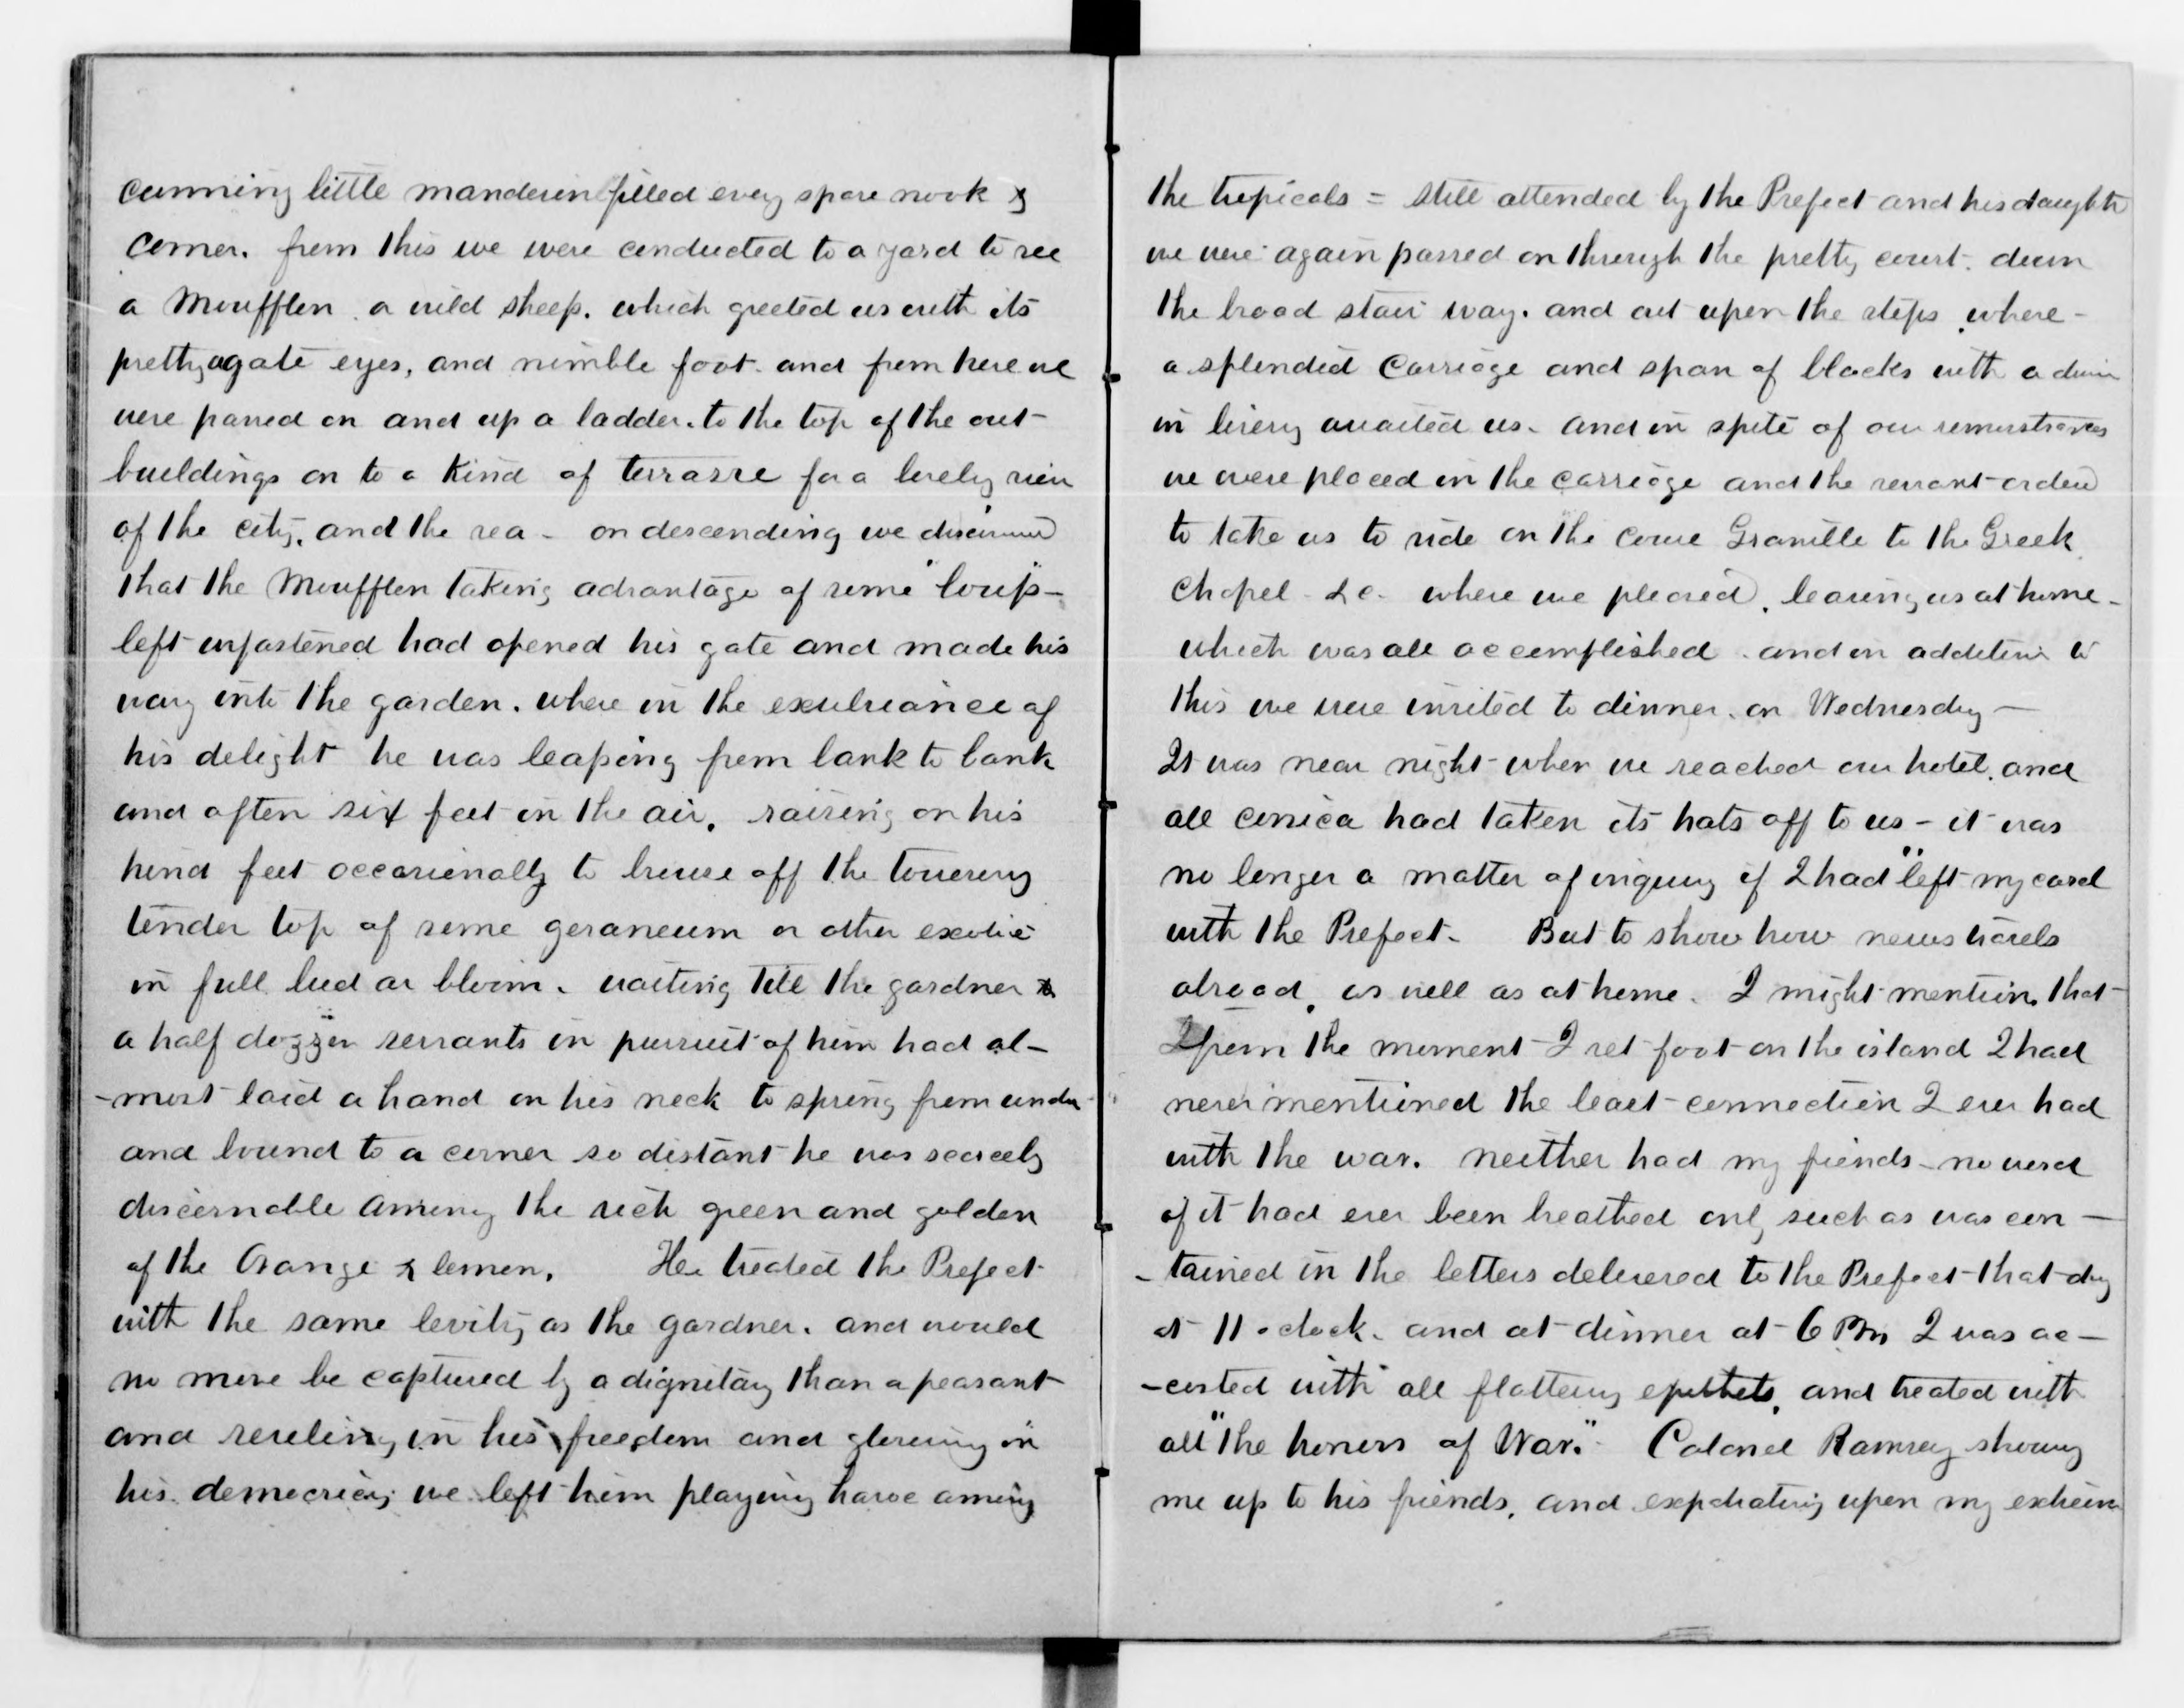 cunning little manderin filled every spare nook &
corner. from this we were conducted to a yard to see
a Moufflon. a wild sheep. which greeted us with its
pretty agate eyes, and nimble foot. and from here we
were passed on and up a ladder. to the top of the out-
buildings on to a kind of terrasse for a lovely view
of the city, and the sea - on descending we discovered
that the Moufflon taking advantage of some "loup"-
left unfastened had opened his gate and made his
way into the garden. where in the exuberiance of
his delight he was leaping from bank to bank
and often six feet in the air. raising on his
hind feet occasionally to browse off the towering
tender top of some geraneum or other exotic
in full bud or bloom. waiting till the gardner &
a half dozzen servants in pursuit of him had al-
-most laid a hand on his neck to spring from under
and bound to a corner so distant he was scarcely
discernable among the rich green and golden
of the Orange & lemon. He treated the Prefect
with the same levity as the gardner. and would
no more be captured by a dignitary than a peasant
and reveling in his freedom and glorying in
his democricy we left him playing havoc among
the tropicals = still attended by the Prefect and his daughter
we were again passed on through the pretty court. down
the broad stair way. and out upon the steps. where -
a splended carriage and span of blacks with a driver
in livery awaited us. and in spite of our remonstrances
we were placed in the carriage and the servant ordered
to take us to ride on the Granille to the Greek
Chapel - &c - where we pleased, leaving us at home -
which was all accomplished. and in addition to
this we were invited to dinner. on Wednesday -
It was near night when we reached our hotel. and
all corsica had taken its hats off to us - it was
no longer a matter of inquiry if I had "left my card
with the Prefect. But to show how news travels
abroad, as well as at home. I might mention. that
from the moment I set foot on the island I had
never mentioned the least connection I ever had
with the war. neither had my friends - no word
of it had ever been breathed only such as was con -
- tained in the letters delivered to the Prefect that day
at 11 o clock. and at dinner at 6 P.M. I was ac -
-costed with all flattering epithets, and treated with
all "the honors of War." Colonel Ramsey showing
me up to his friends, and expatiating upon my